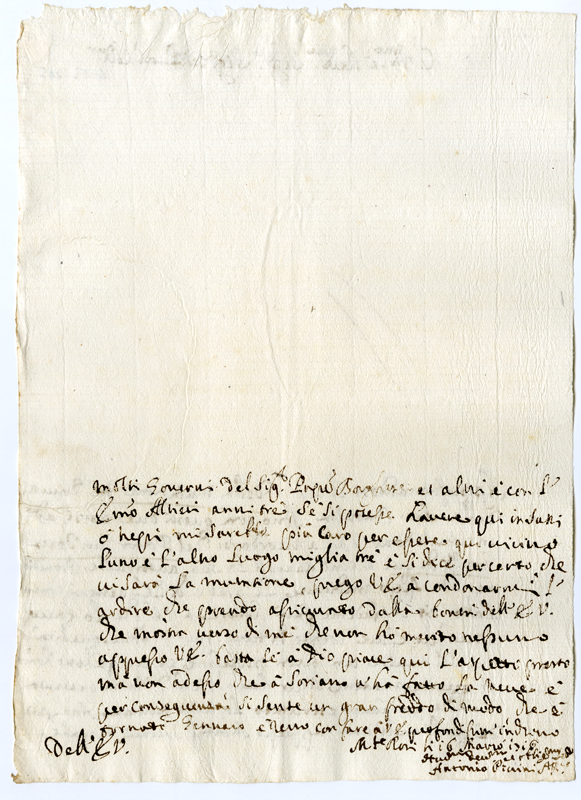 molti Governi del Sig.r Borghese et altri è con l'
Em.o Altieri anni tre, se si potesse havere qui in Sutri
ò Nepi mi sarebbe più caro per essere qui vicino
l'uno è l'altro luogo miglia trè è si dice per certo che
vi sarà la mutatione, prego V.E. à condonarmi l'
ardire che prendo assicurato dalla bontà dell'E.V.
che mostra verso di me che non ho merito nessuno
appresso V.E. basta se à Dio piace qui l'aspetto presto
mà non adesso che à Soriano v'hà fatto la neve è
per conseguenza si sente un gran freddo di modo che è
tornato Gennaro è resto con fare à V.E. profondissimo inchino
Dell'E.V.
M.te Rosi li 16 Marzo
Antonio